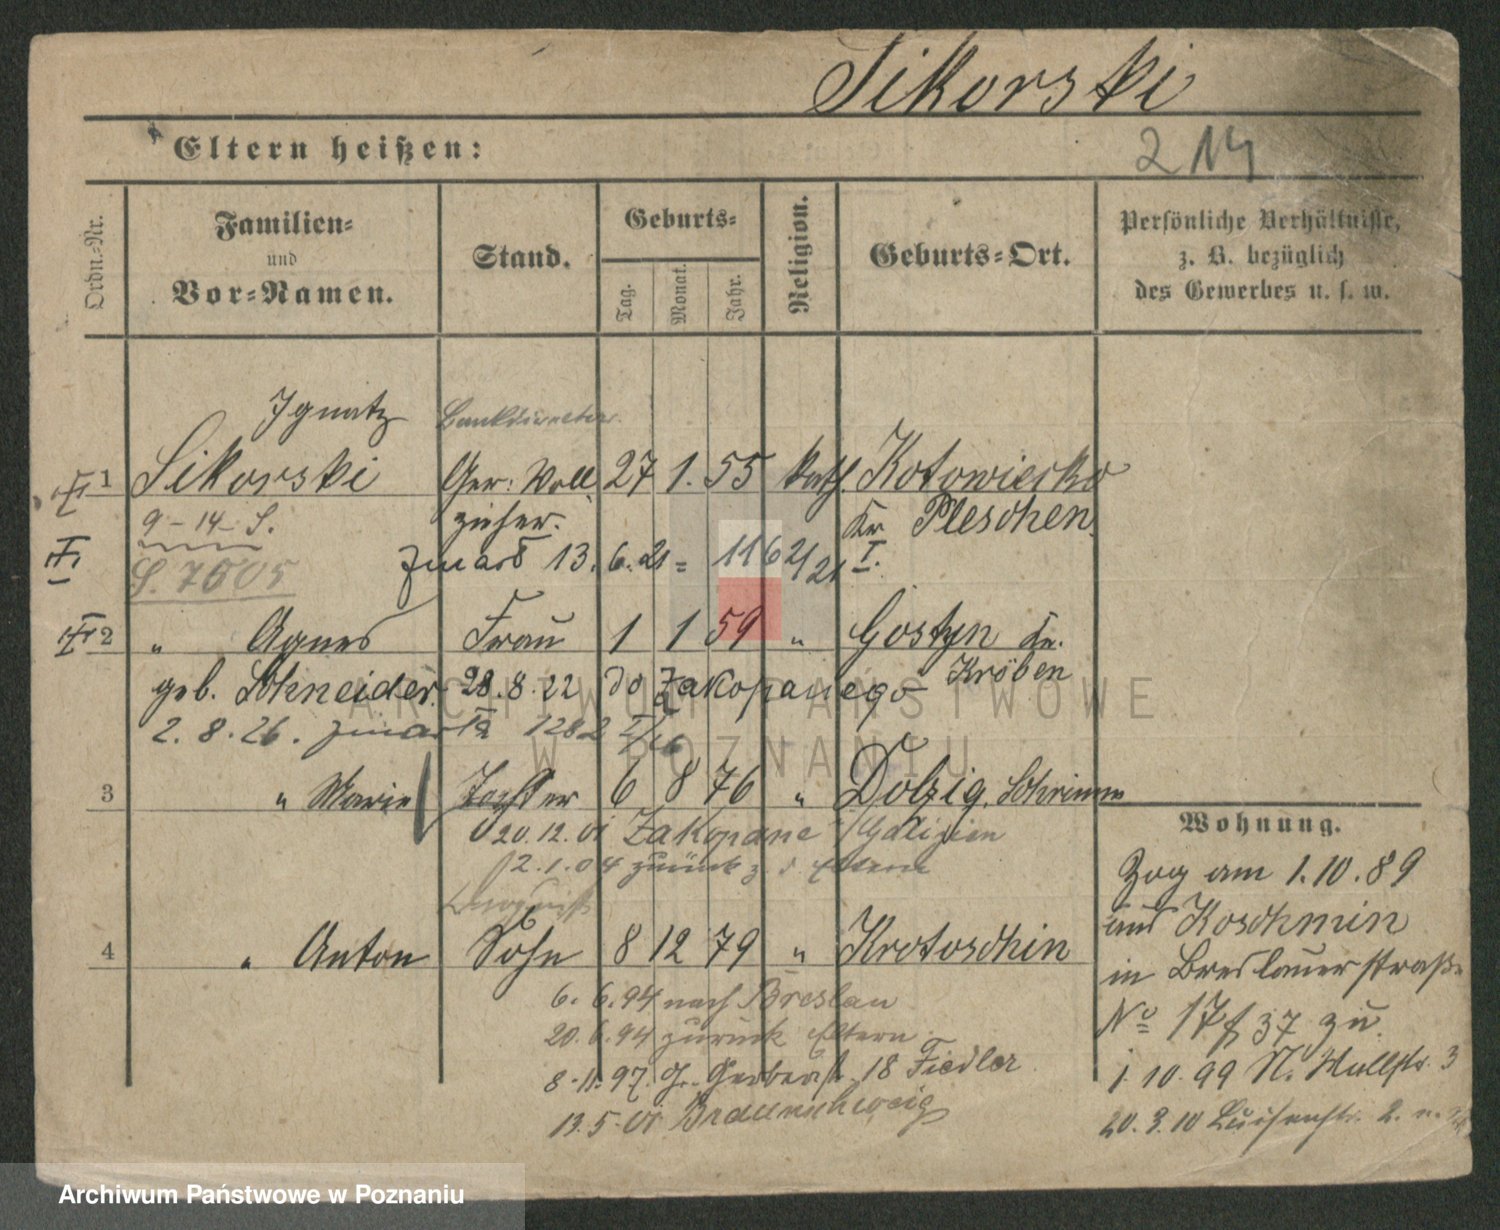 Sikorski
Eltern heißen:
214
Ordn.-Nr.
Familien-
und
Vor-Namen.
Stand.
Geburts-
Tag.
Monat.
Jahr.
Religion.
Geburts-Ort.
Persönliche Verhältnisse,
z. B. bezüglich
des Gewerbes u. s. w.
Ignatz Bankdirektor
1 Sikorski Ger: Voll 27 1. 55 kath. Kotowiecko
9-14 S. zieher. Kr Pleschen
S. 7605 zmarł 13. 6. 21 = 1162/21 I.
2 " Agnes Frau 1 1 59 " Gostyn Kr.
geb. Schneider. 28. 8. 22 do Zakopanego Kröben
2. 8. 26. zmar 1282
3 " Marie Tochter 6 8 76 " Dolzig, Schrimm
20. 12. 01 Zakopane Galizien
2. 1. 04 zurück z. d Eltern
4 " Anton Sohn 8 12 79 " Krotoschin
6. 6. 94 nach Breslau
20. 6. 94 zurück Eltern
8. 11. 97. Gr. Gerberst. 18 Fiedler
13. 5. 01 Braunschweig
Wohnung.
Zog am 1. 10. 89
aus Koschmin
in Breslauerstraße
No 17/37 zu.
1. 10. 99 N. Wallstr. 3
20. 3. 10 Luisenstr. 2.
ARCHIWUM PAŃSTWOWE
W POZNANIU
Archiwum Państwowe w Poznaniu